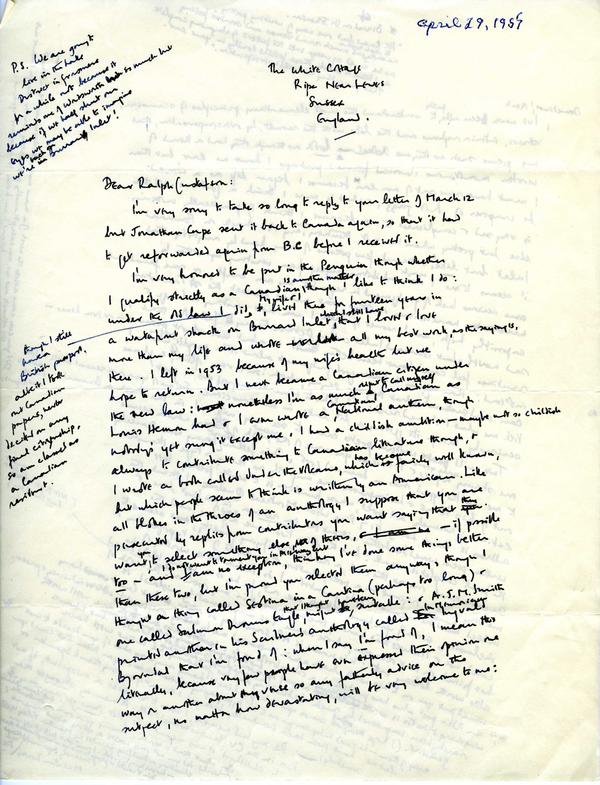 April 29, 1957
P.S. We are going to
live in the Lake
District in
for a while not because it
reminds one of Wordsworth so much but
because if we half shut our
eyes we may be able to imagine
we're on Burrard Inlet!
The White Cottage
Ripe Near Lewes
Sussex
England.
Dear Ralph Gustafson:
I'm very sorry to take so long to reply to your letter of March 12
but Jonathan Cape sent it back to Canada again, so that it had
to get reforwarded again from B.C before I received it.
I'm very honored to be put in the Penguin though whether
I qualify strictly as a Canadian is another matter, though I like to think I do:
under the old law I did, My wife & I lived there for fourteen years in
a waterfront shack on Burrard Inlet, that I loved & love
more than my life and wrote all my best work, as the saying is,
there. I left in 1953 because of my wife's health but we
hope to return. But I never became a Canadian citizen under
the new law: nonetheless I'm as much a Canadian as
Louis Hemon had & I even wrote a Canadian National anthem, though
nobody's yet sung it except me. I had a childish ambition – maybe not so childish
always to contribute something to Canadian literature though, &
I wrote a book called Under the Volcano, which has become fairly well known,
but which people seem to think is written by an American. Like
all blokes in the throes of an anthology I suppose that you are
persecuted by replies from contributors you want saying that they
want you to select something else of theirs, – if possible
too – and I am no exception, thinking I've done some things better
than these two, but I'm proud you selected them anyway, though I
thought an thing called Sestina in a Cantina (perhaps too long) &
one called Salmon Drowns Eagle, might be suitable: & A.J.M. Smith
printed another in his Scribners anthology called In Memoriam Ingvald
Bjorndal that I'm fond of: when I say I'm fond of, I mean this
literally, because very few people have ever expressed their opinion one
way or another about my verse so any fatherly advice on the
subject, no matter how devastating, will be very welcome to me:
though I still
have a
British passport,
albeit I took
out Canadian
papers, never
decided on any
final citizenship,
so am classed as
a Canadian
resident.